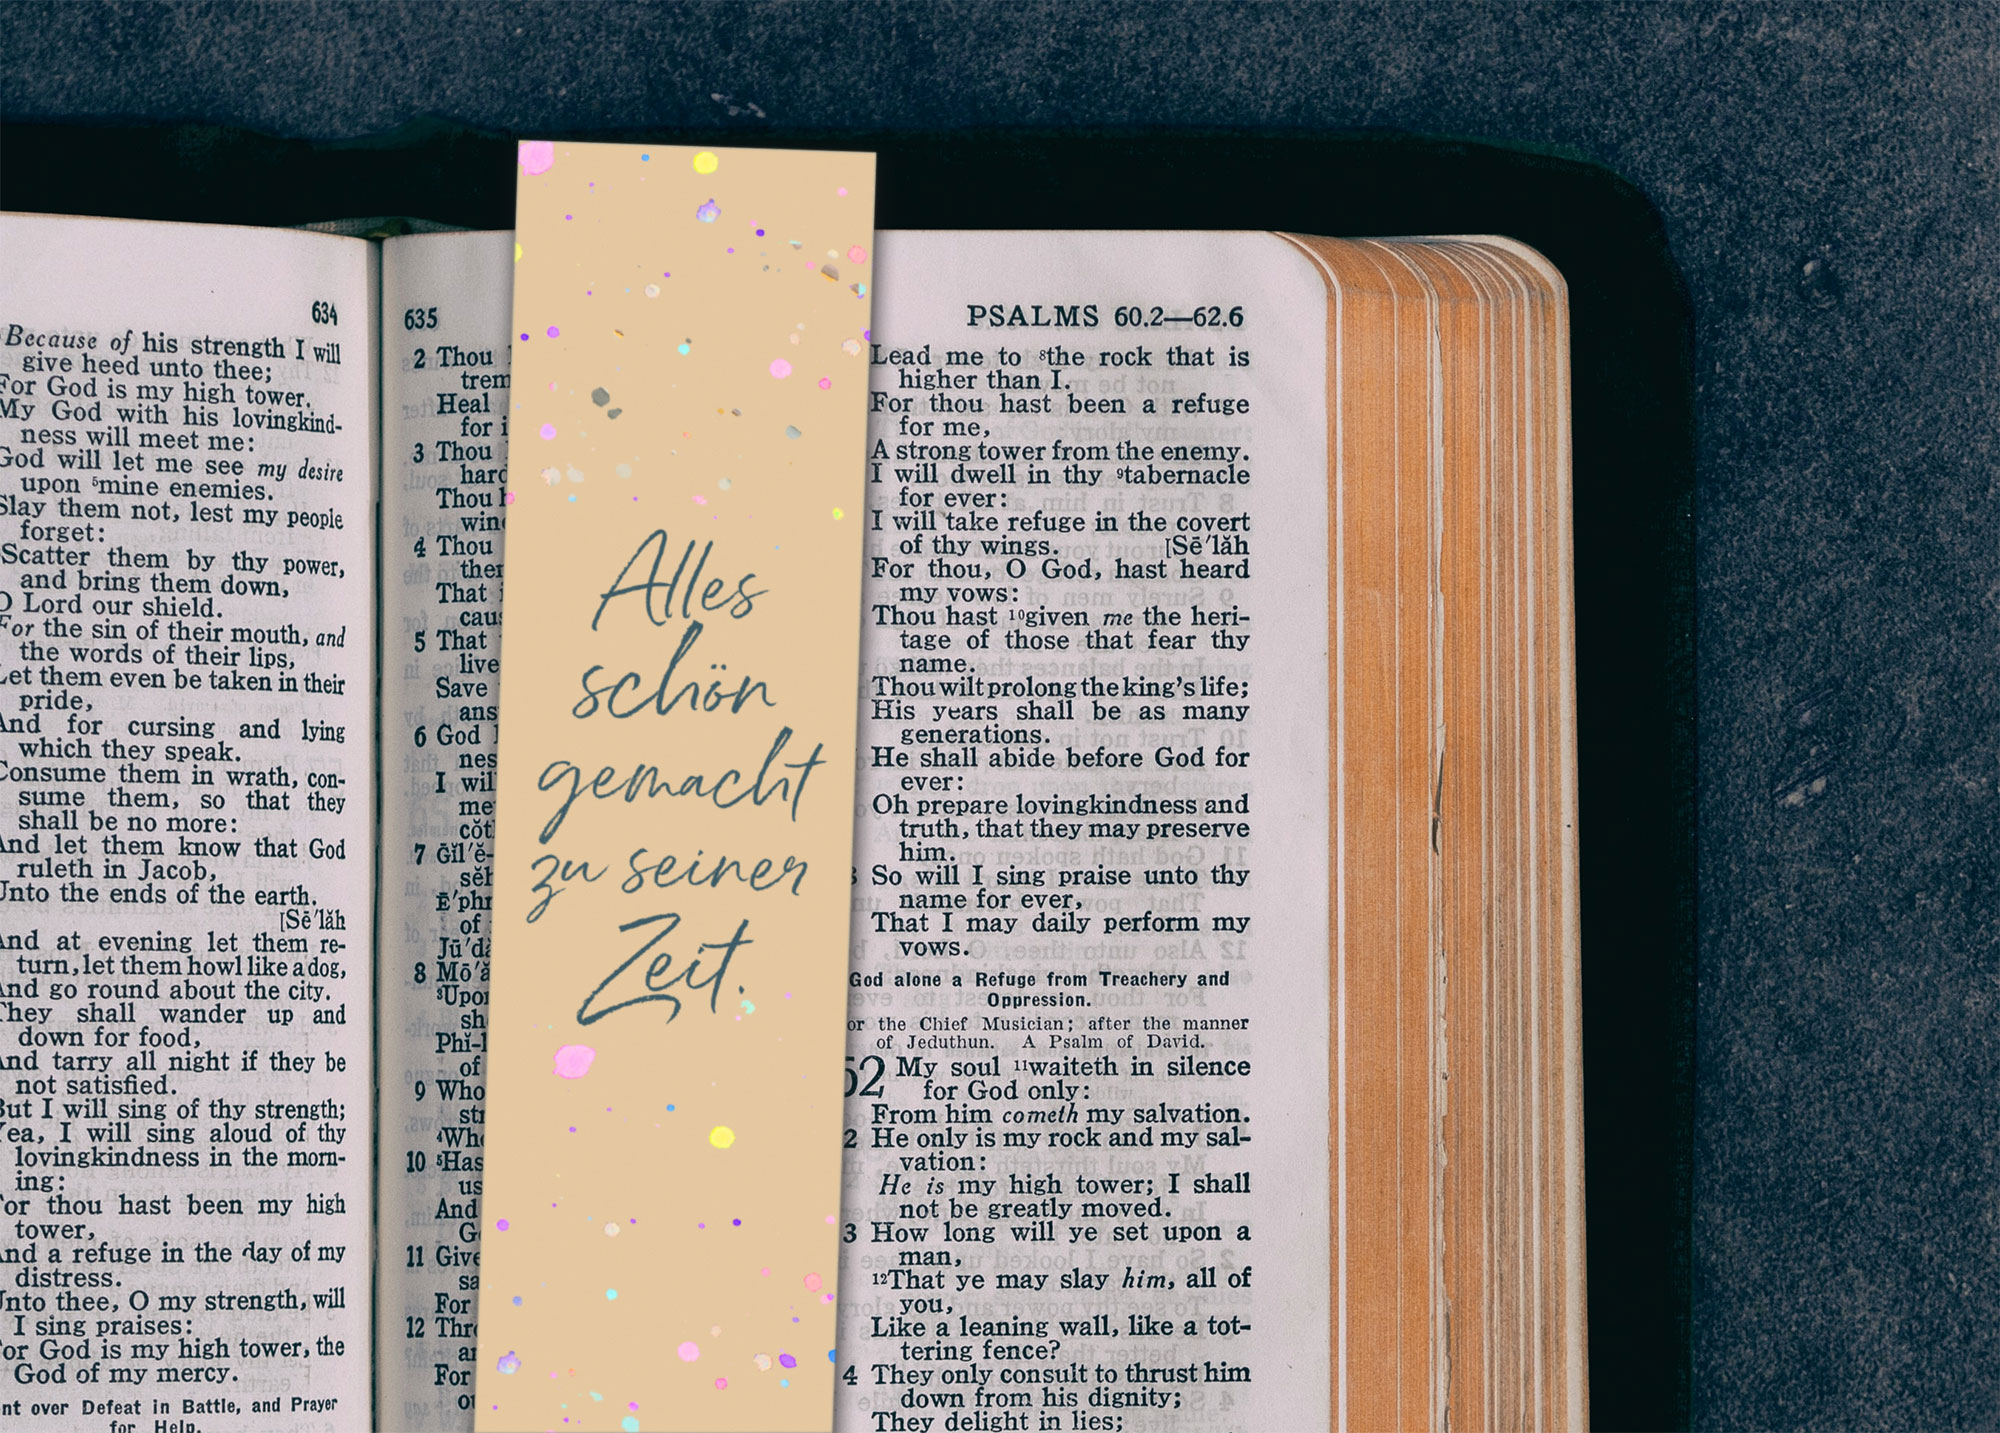 634
Because of his strength I will
give heed unto thee;
For God is my high tower.
My God with his lovingkind-
ness will meet me:
God will let me see my desire
upon ⁵mine enemies.
Slay them not, lest my people
forget:
Scatter them by thy power,
and bring them down,
O Lord our shield.
For the sin of their mouth, and
the words of their lips,
Let them even be taken in their
pride,
And for cursing and lying
which they speak.
Consume them in wrath, con-
sume them, so that they
shall be no more:
And let them know that God
ruleth in Jacob,
Unto the ends of the earth.
[Sē′lăh
And at evening let them re-
turn, let them howl like a dog,
And go round about the city.
They shall wander up and
down for food,
And tarry all night if they be
not satisfied.
But I will sing of thy strength;
Yea, I will sing aloud of thy
lovingkindness in the morn-
ing:
For thou hast been my high
tower,
And a refuge in the day of my
distress.
Unto thee, O my strength, will
I sing praises:
For God is my high tower, the
God of my mercy.
over Defeat in Battle, and Prayer
for Help.
635
2 Thou
Heal
for
3 Thou
hard
Thou
4 Thou
That
5 That
live
Save
6 God
I will
7 Gĭl′ĕ-
of
8
³Upon
of
9 Who
10 ⁵Has
us
And
11 Give
For
12
For
Alles
schön
gemacht
zu seiner
Zeit.
PSALMS 60.2—62.6
Lead me to ⁸the rock that is
higher than I.
For thou hast been a refuge
for me,
A strong tower from the enemy.
I will dwell in thy ⁹tabernacle
for ever:
I will take refuge in the covert
of thy wings. [Sē′lăh
For thou, O God, hast heard
my vows:
Thou hast ¹⁰given me the heri-
tage of those that fear thy
name.
Thou wilt prolong the king's life;
His years shall be as many
generations.
He shall abide before God for
ever:
Oh prepare lovingkindness and
truth, that they may preserve
him.
8 So will I sing praise unto thy
name for ever,
That I may daily perform my
vows.
God alone a Refuge from Treachery and
Oppression.
For the Chief Musician; after the manner
of Jeduthun. A Psalm of David.
62 My soul ¹¹waiteth in silence
for God only:
From him cometh my salvation.
2 He only is my rock and my sal-
vation:
He is my high tower; I shall
not be greatly moved.
3 How long will ye set upon a
man,
¹²That ye may slay him, all of
you,
Like a leaning wall, like a tot-
tering fence?
4 They only consult to thrust him
down from his dignity;
They delight in lies;